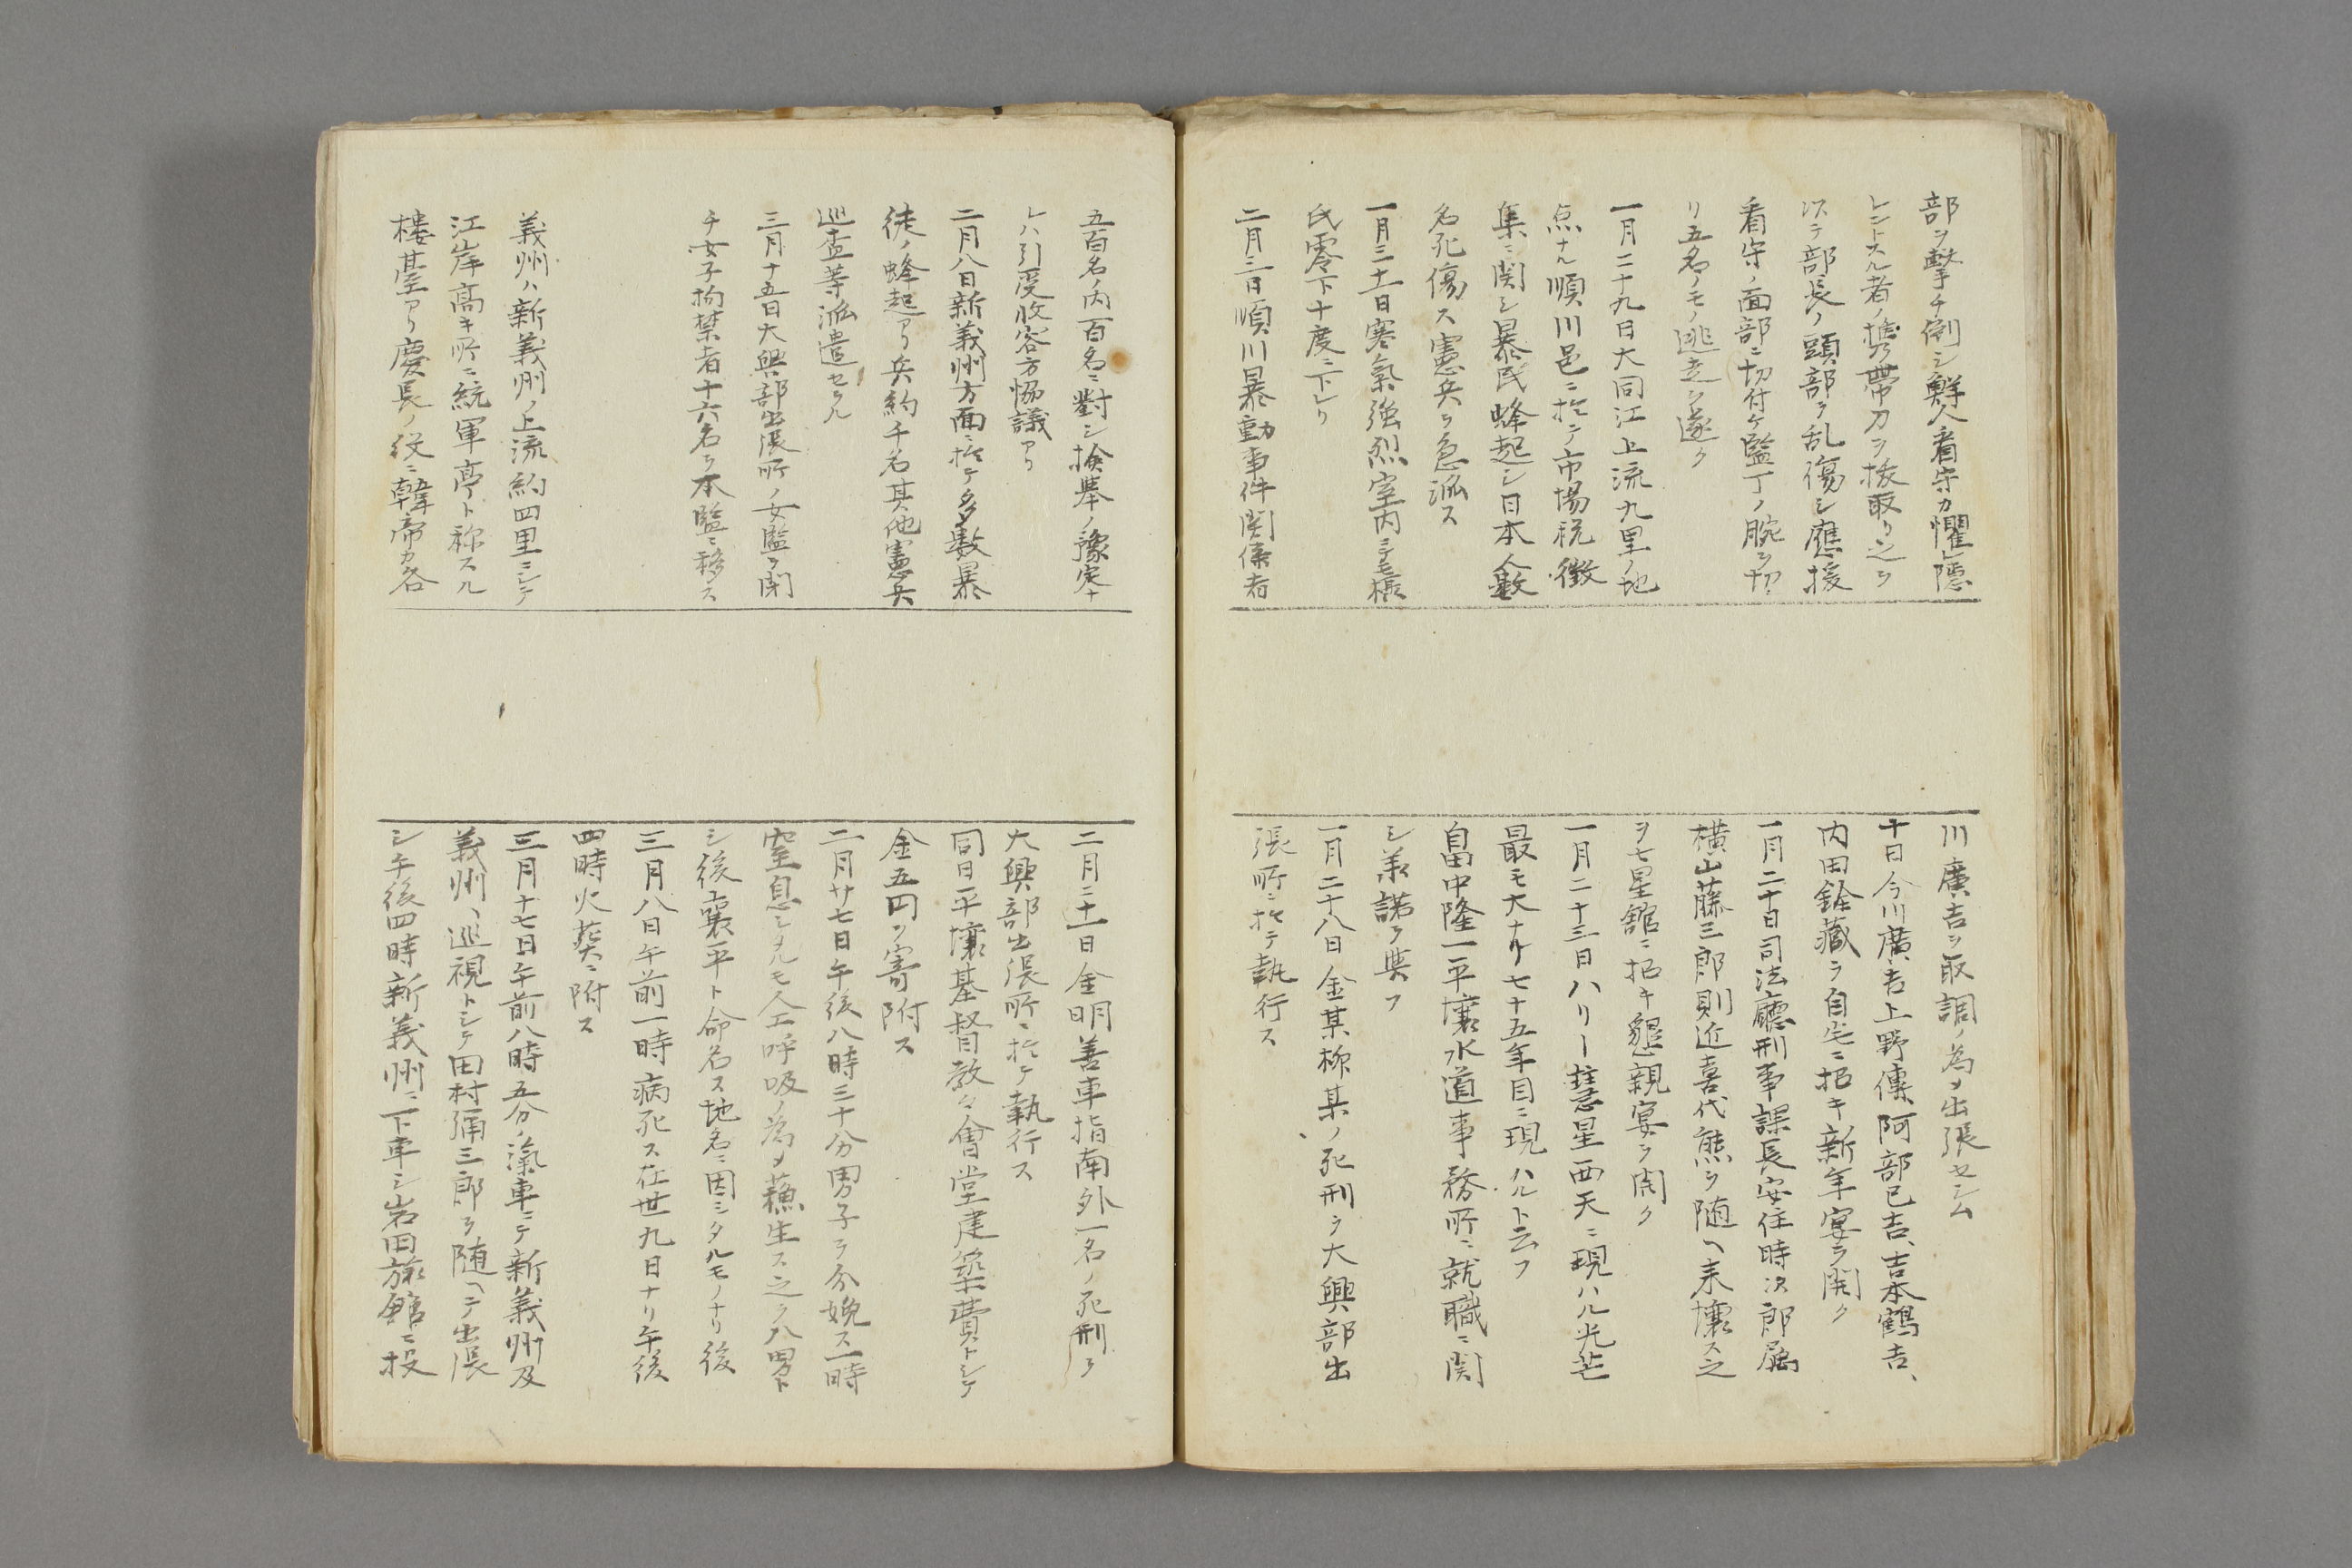 部ヲ撃チ倒シ鮮人看守カ懼レ隠
レントスル者ノ携帶刀ヲ拔取リ之ヲ
以テ部長ノ頭部ヲ乱傷シ應援
看守ノ面部ニ切付ケ監丁ノ腕ヲ切
リ五名ノモノ逃走シ遂ク
一月二十九日大同江上流九里ノ地
点ナル順川邑ニ於テ市場税徴
集ニ関シ暴民蜂起シ日本人数
名死傷ス憲兵ヲ急派ス
一月三十一日寒氣強烈室内ニテモ攝
氏零下十度ニ下レリ
二月三日順川暴動事件関係者
五百名ノ内百名ニ對シ検挙ノ豫定ナ
レハ引受收容方協議アリ
二月八日新義州方面ニ於テ多數暴
徒ノ蜂起アリ兵約千名其他憲兵
巡査等派遣セラル
三月十五日大興部出張所ノ女監ヲ閉
チ女子拘禁者十六名ヲ本監ニ移ス
義州ハ新義州ノ上流約四里ニシテ
江岸高キ所ニ統軍亭ト称スル
樓臺アリ慶長ノ役ニ韓帝カ各
川廣吉ヲ取調ノ為メ出張セシム
十日今川廣吉上野傳、阿部已吉、吉本鶴吉、
内田銓藏ヲ自宅ニ招キ新年宴ヲ開ク
一月二十日司法廳刑事課長安住時次郎属
横山藤三郎則近喜代熊ヲ随ヘ来壤ス之
ヲ七星館ニ招キ懇親宴ヲ開ク
一月二十三日ハリー彗星西天ニ現ハル光芒
最モ大ナリ七十五年目ニ現ハルト云フ
畠中隆一平壤水道事務所ニ就職ニ関
シ承諾ヲ與フ
一月二十八日金某柳某ノ死刑ヲ大興部出
張所ニ於テ執行ス
二月二十一日金明善車指南外一名ノ死刑ヲ
大興部出張所ニ於テ執行ス
同日平壤基督教々會堂建築費トシテ
金五円ヲ寄附ス
二月廿七日午後八時三十分男子ヲ分娩ス一時
窒息シタルモ人工呼吸ノ為メ蘓生ス之ヲ八男ト
シ後襄平ト命名ス地名ニ因ミタルモノナリ後
三月八日午前一時病死ス在世九日ナリ午後
四時火葬ニ附ス
三月十七日午前八時五分ノ滊車ニテ新義州及
義州ヘ巡視トシテ田村彌三郎ヲ随ヘテ出張
シ午後四時新義州ニ下車シ岩田旅館ニ投